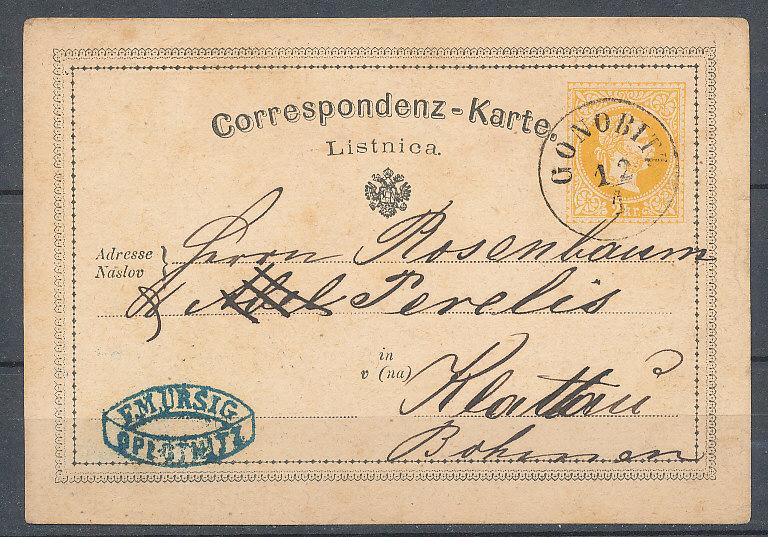 Correspondenz-Karte.
Listnica.
GONOBITZ
12
4
Adresse
Naslov
Herrn Rosenbaum
& Perelis
in
v (na)
Klattau
Böhmen
F.M.URSIG
OPLOTNITZ